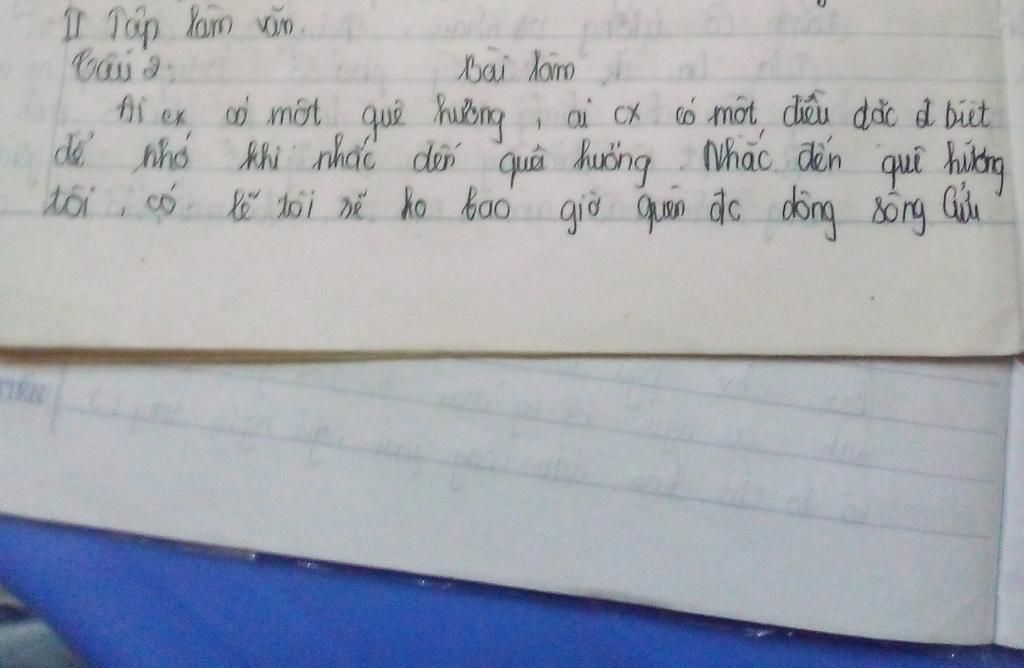 II Tập làm văn.
Câu 2:
Bài làm
Ai cx có một quê hương, ai cx có một điều đặc đ biệt
để nhớ khi nhắc đến quê hương. Nhắc đến quê hương
tôi, có lẽ tôi sẽ ko bao giờ quên đc dòng sông Cửu
TIÊN